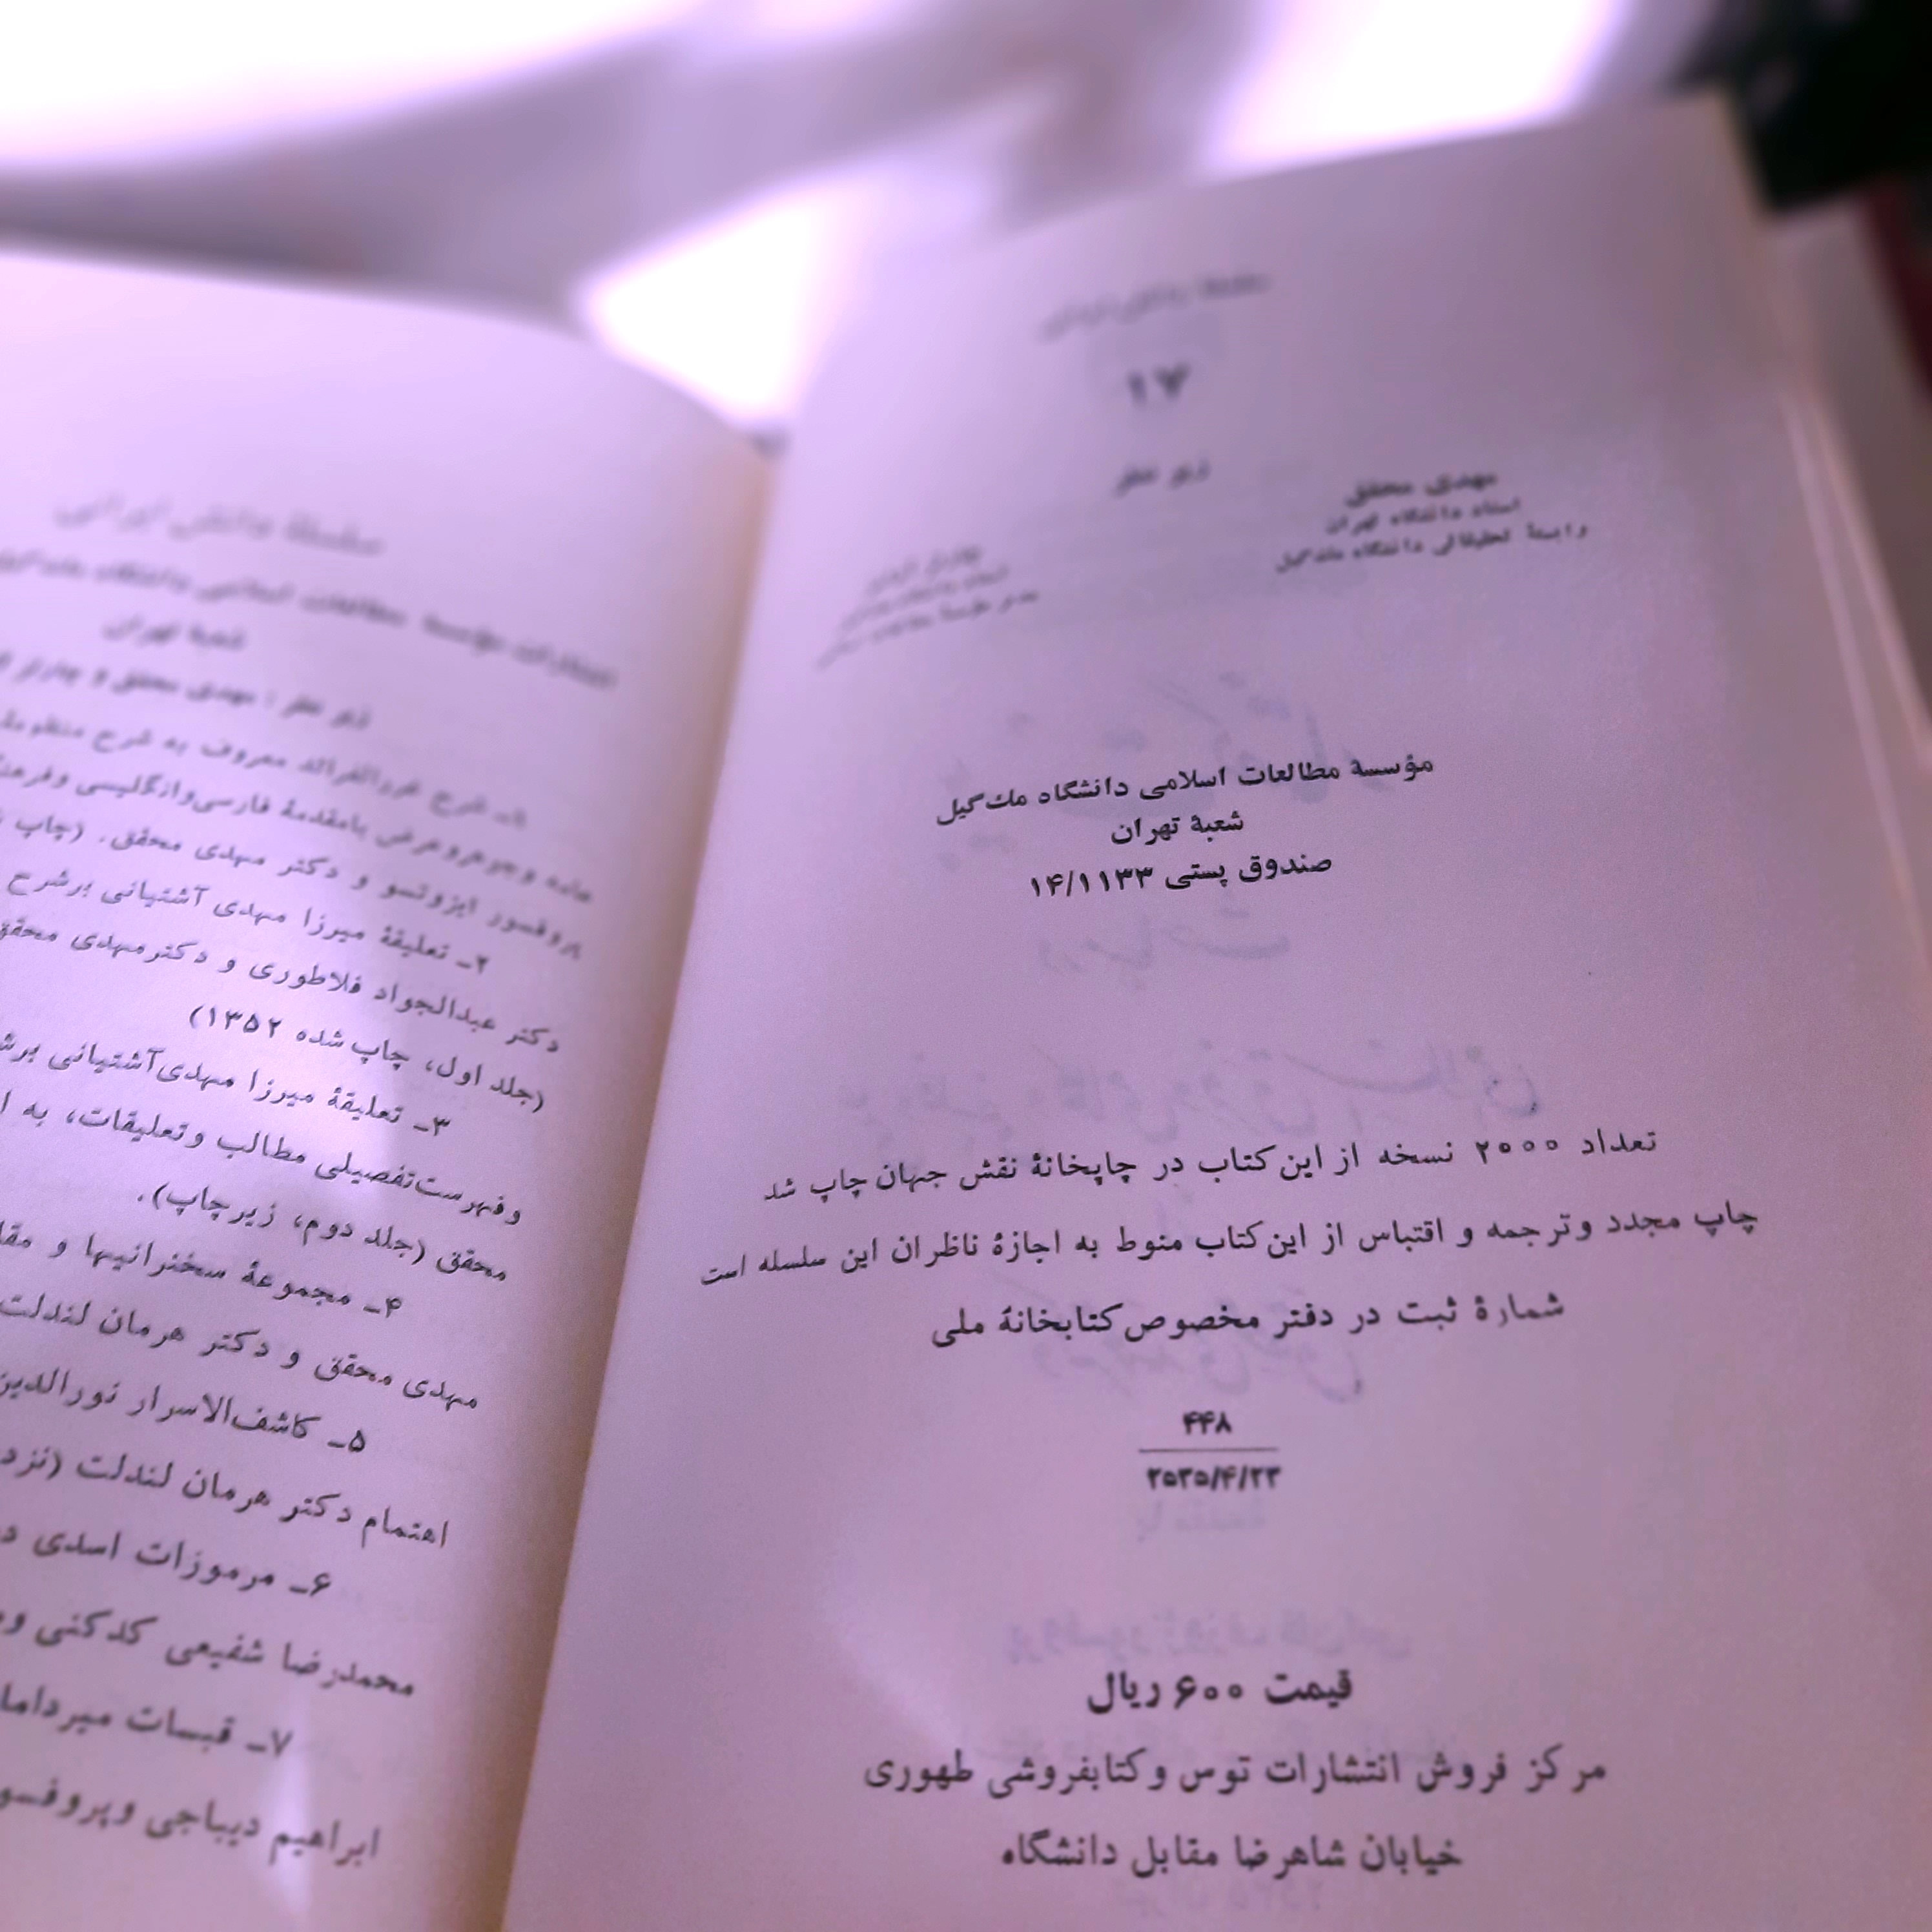 سلسلهٔ دانش ایرانی
۱۷
زیر نظر
مهدی محقق
استاد دانشگاه تهران
وابستهٔ تحقیقاتی دانشگاه مك‌گیل
مؤسسهٔ مطالعات اسلامی دانشگاه مك‌گیل
شعبهٔ تهران
صندوق پستی ۱۴/۱۱۳۳
تعداد ۲۰۰۰ نسخه از این کتاب در چاپخانهٔ نقش جهان چاپ شد
چاپ مجدد وترجمه و اقتباس از این کتاب منوط به اجازهٔ ناظران این سلسله است
شمارهٔ ثبت در دفتر مخصوص کتابخانهٔ ملی
۴۴۸
۲۵۳۵/۴/۲۳
قیمت ۶۰۰ ریال
مرکز فروش انتشارات توس وکتابفروشی طهوری
خیابان شاهرضا مقابل دانشگاه
سلسلهٔ دانش ایرانی
انتشارات مؤسسهٔ مطالعات اسلامی دانشگاه مك‌گیل
شعبهٔ تهران
زیر نظر : مهدی محقق و چارلز
۱ـ شرح غررالفرائد معروف به شرح منظومهٔ
وجوهروعرض بامقدمهٔ فارسی‌وانگلیسی وفرهنگ
پروفسور ایزوتسو و دکتر مهدی محقق. (چاپ
۲ـ تعلیقهٔ میرزا مهدی آشتیانی برشرح
دکتر عبدالجواد فلاطوری و دکترمهدی محقق
(جلد اول، چاپ شده ۱۳۵۲)
۳ـ تعلیقهٔ میرزا مهدی‌آشتیانی
وفهرست‌تفصیلی مطالب وتعلیقات، به
محقق (جلد دوم، زیرچاپ).
۴ـ مجموعهٔ سخنرانیها و
مهدی محقق و دکتر هرمان لندلت
۵ـ کاشف‌الاسرار نورالدین
اهتمام دکتر هرمان لندلت (نزد
۶ـ مرموزات اسدی
محمدرضا شفیعی کدکنی
۷ـ قبسات
ابراهیم دیباجی